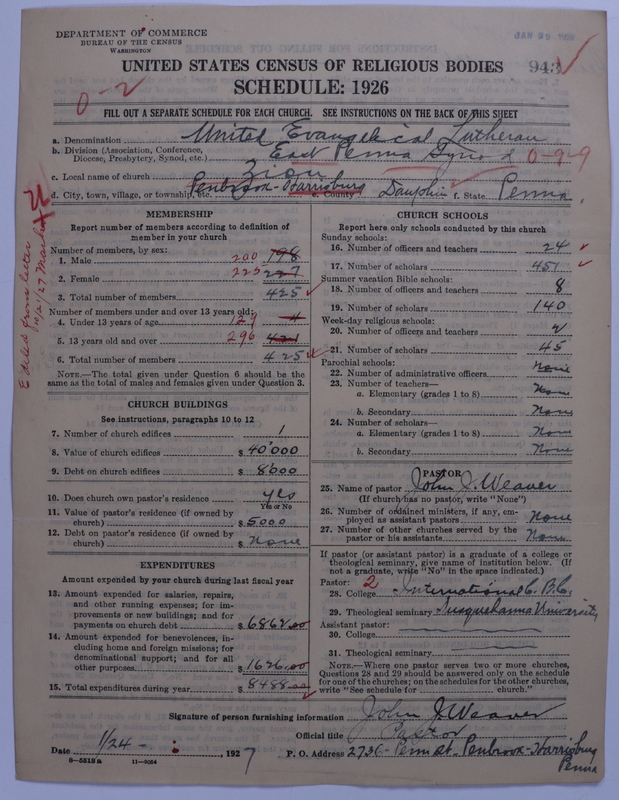 DEPARTMENT OF COMMERCE
BUREAU OF THE CENSUS
WASHINGTON
UNITED STATES CENSUS OF RELIGIOUS BODIES
943
SCHEDULE: 1926
0-2
FILL OUT A SEPARATE SCHEDULE FOR EACH CHURCH. SEE INSTRUCTIONS ON THE BACK OF THIS SHEET
a. Denomination United Evangelical Lutheran
b. Division (Association, Conference, Diocese, Presbytery, Synod, etc.) East Penna Synod 0-9-9
c. Local name of church Zion
d. City, town, village, or township, etc. Penbrook-Harrisburg e. County Dauphin f. State Penna.
MEMBERSHIP
Report number of members according to definition of
member in your church
Number of members, by sex:
1. Male 200 198
2. Female 225 227
3. Total number of members 425
Number of members under and over 13 years old:
4. Under 13 years of age 129 4
5. 13 years old and over 296 421
6. Total number of members 425
NOTE.—The total given under Question 6 should be
same as the total of males and females given under Question 3.
Edited from letter
CHURCH BUILDINGS
See instructions, paragraphs 10 to 12
7. Number of church edifices 1
8. Value of church edifices $ 40'000
9. Debt on church edifices $ 8000
10. Does church own pastor's residence yes
Yes or No
11. Value of pastor's residence (if owned by
church) $ 5000
12. Debt on pastor's residence (if owned by
church) $ None
EXPENDITURES
Amount expended by your church during last fiscal year
13. Amount expended for salaries, repairs,
and other running expenses; for im-
provements or new buildings; and for
payments on church debt $ 6862.00
14. Amount expended for benevolences, in-
cluding home and foreign missions; for
denominational support; and for all
other purposes $ 1626.00
15. Total expenditures during year $ 8488.00
CHURCH SCHOOLS
Report here only schools conducted by this church
Sunday schools:
16. Number of officers and teachers 24
17. Number of scholars 451
Summer vacation Bible schools:
18. Number of officers and teachers 8
19. Number of scholars 140
Week-day religious schools:
20. Number of officers and teachers 2
21. Number of scholars 45
Parochial schools:
22. Number of administrative officers None
23. Number of teachers—
a. Elementary (grades 1 to 8) None
b. Secondary None
24. Number of scholars—
a. Elementary (grades 1 to 8) None
b. Secondary None
PASTOR
25. Name of pastor John J. Weaver
(If church has no pastor, write "None")
26. Number of ordained ministers, if any, em-
ployed as assistant pastors None
27. Number of other churches served by the
pastor or his assistants None
If pastor (or assistant pastor) is a graduate of a college or
theological seminary, give name of institution below. (If
not a graduate, write "No" in the space indicated.)
Pastor: 2
28. College International C. B. C.
29. Theological seminary Susquehanna University
Assistant pastor:
30. College
31. Theological seminary
NOTE.—Where one pastor serves two or more churches,
Questions 28 and 29 should be answered only on the schedule
for one of the churches; on the schedules for the other churches,
write "See schedule for church."
Signature of person furnishing information John J. Weaver
Official title Pastor
Date 1/24 - , 1927
P. O. Address 2736- Penn st. Penbrook-Harrisburg
Penna
8-5519 a 11-9064